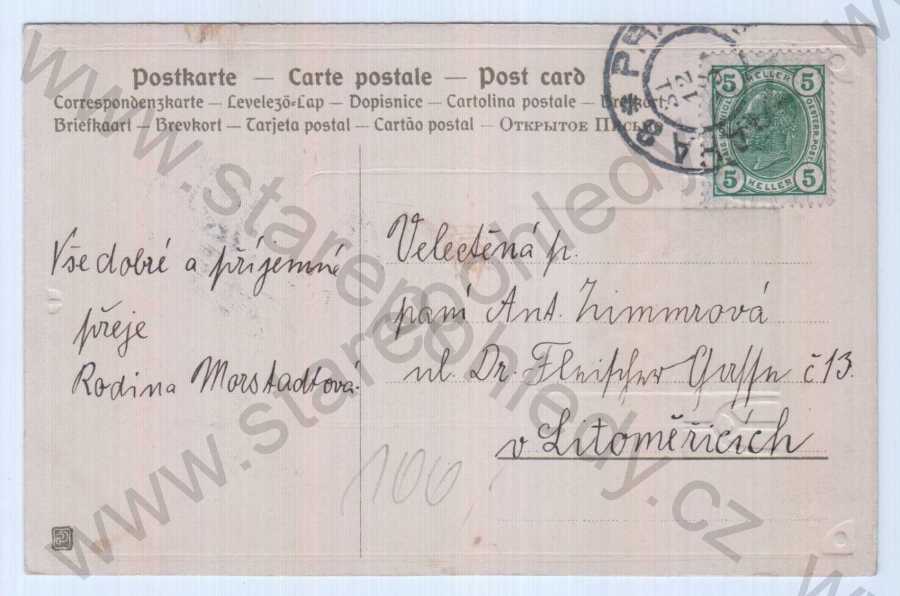 Postkarte — Carte postale — Post card
Correspondenzkarte — Levelező-Lap — Dopisnice — Cartolina postale — Brefkort
Briefkaart — Brevkort — Tarjeta postal — Cartão postal — Открытое Письмо
5 HELLER 5
5 HELLER 5
Všedobré a příjemné
přeje
Rodina Morstadtová.
Velectěná p.
paní Ant. Zimmrová
ul. Dr. Fleischer Gasse č 13.
v Litoměřicích
100
www.stareopohledy.cz